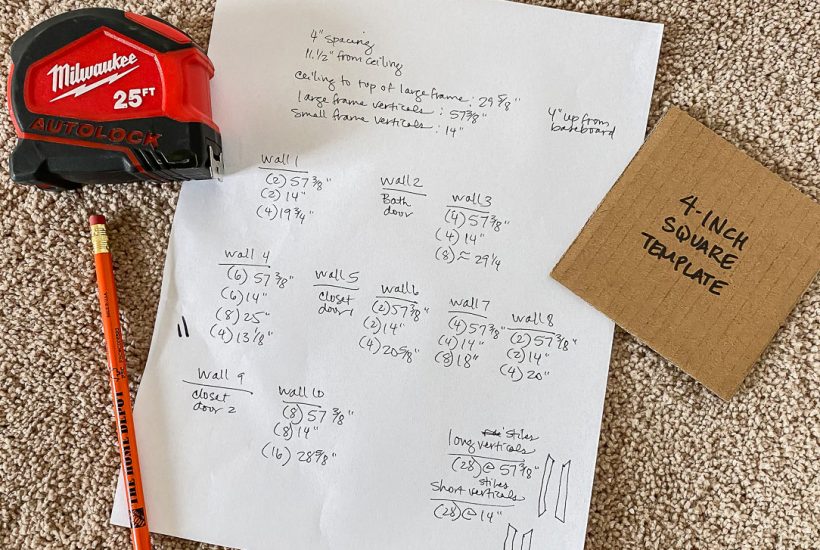 Milwaukee
25FT
AUTOLOCK
4" spacing
11.1/2" from ceiling
ceiling to top of large frame: 29 5/8"
large frame verticals: 57 3/8"
small frame verticals: 14"
4" up from
baseboard
wall 1
(2) 57 3/8"
(2) 14"
(4) 19 3/4"
wall 2
Bath
door
wall 3
(4) 57 3/8"
(4) 14"
(8) ≈ 29 1/4
4-INCH
SQUARE
TEMPLATE
wall 4
(6) 57 3/8"
(6) 14"
(8) 25"
(4) 13 1/8"
wall 5
closet
door 1
wall 6
(2) 57 3/8"
(2) 14"
(4) 20 5/8"
wall 7
(4) 57 3/8"
(4) 14"
(8) 18"
wall 8
(2) 57 3/8"
(2) 14"
(4) 20"
wall 9
closet
door 2
wall 10
(8) 57 3/8"
(8) 14"
(16) 28 5/8"
stiles
long verticals
(28) @ 57 3/8"
stiles
short verticals
(28) @ 14"
THE HOME DEPOT